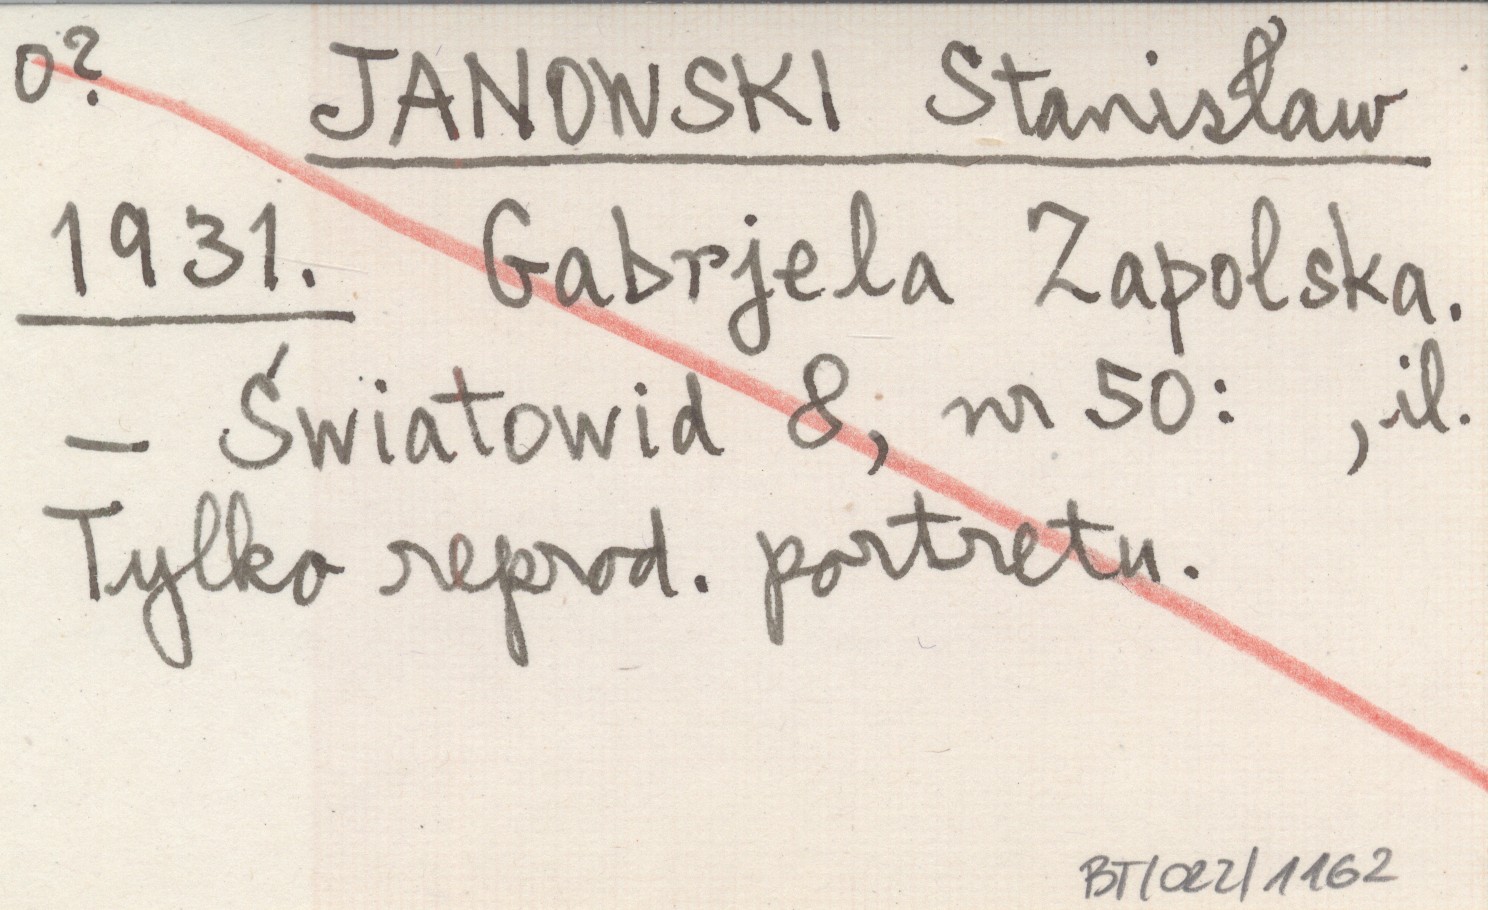 o? JANOWSKI Stanisław
1931. Gabrjela Zapolska.
– Światowid 8, nr 50: , il.
Tylko reprod. portretu.
BT/022/1162